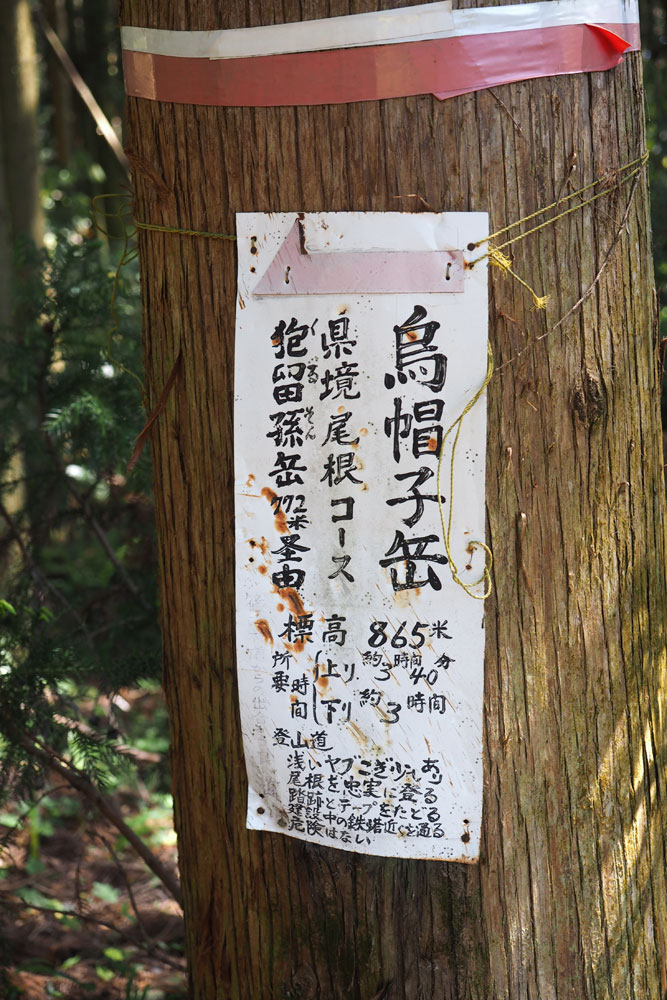 烏帽子岳
県境尾根コース
くるそん
狗留孫岳 772米 圣由
標高 865米
所要時間 (上り 約3時間40分
(下り 約3時間
登山道
浅いヤブこぎ少しあり
尾根を忠実に登る
踏跡とテープをたどる
建設中の鉄塔近くを通る
危険はない